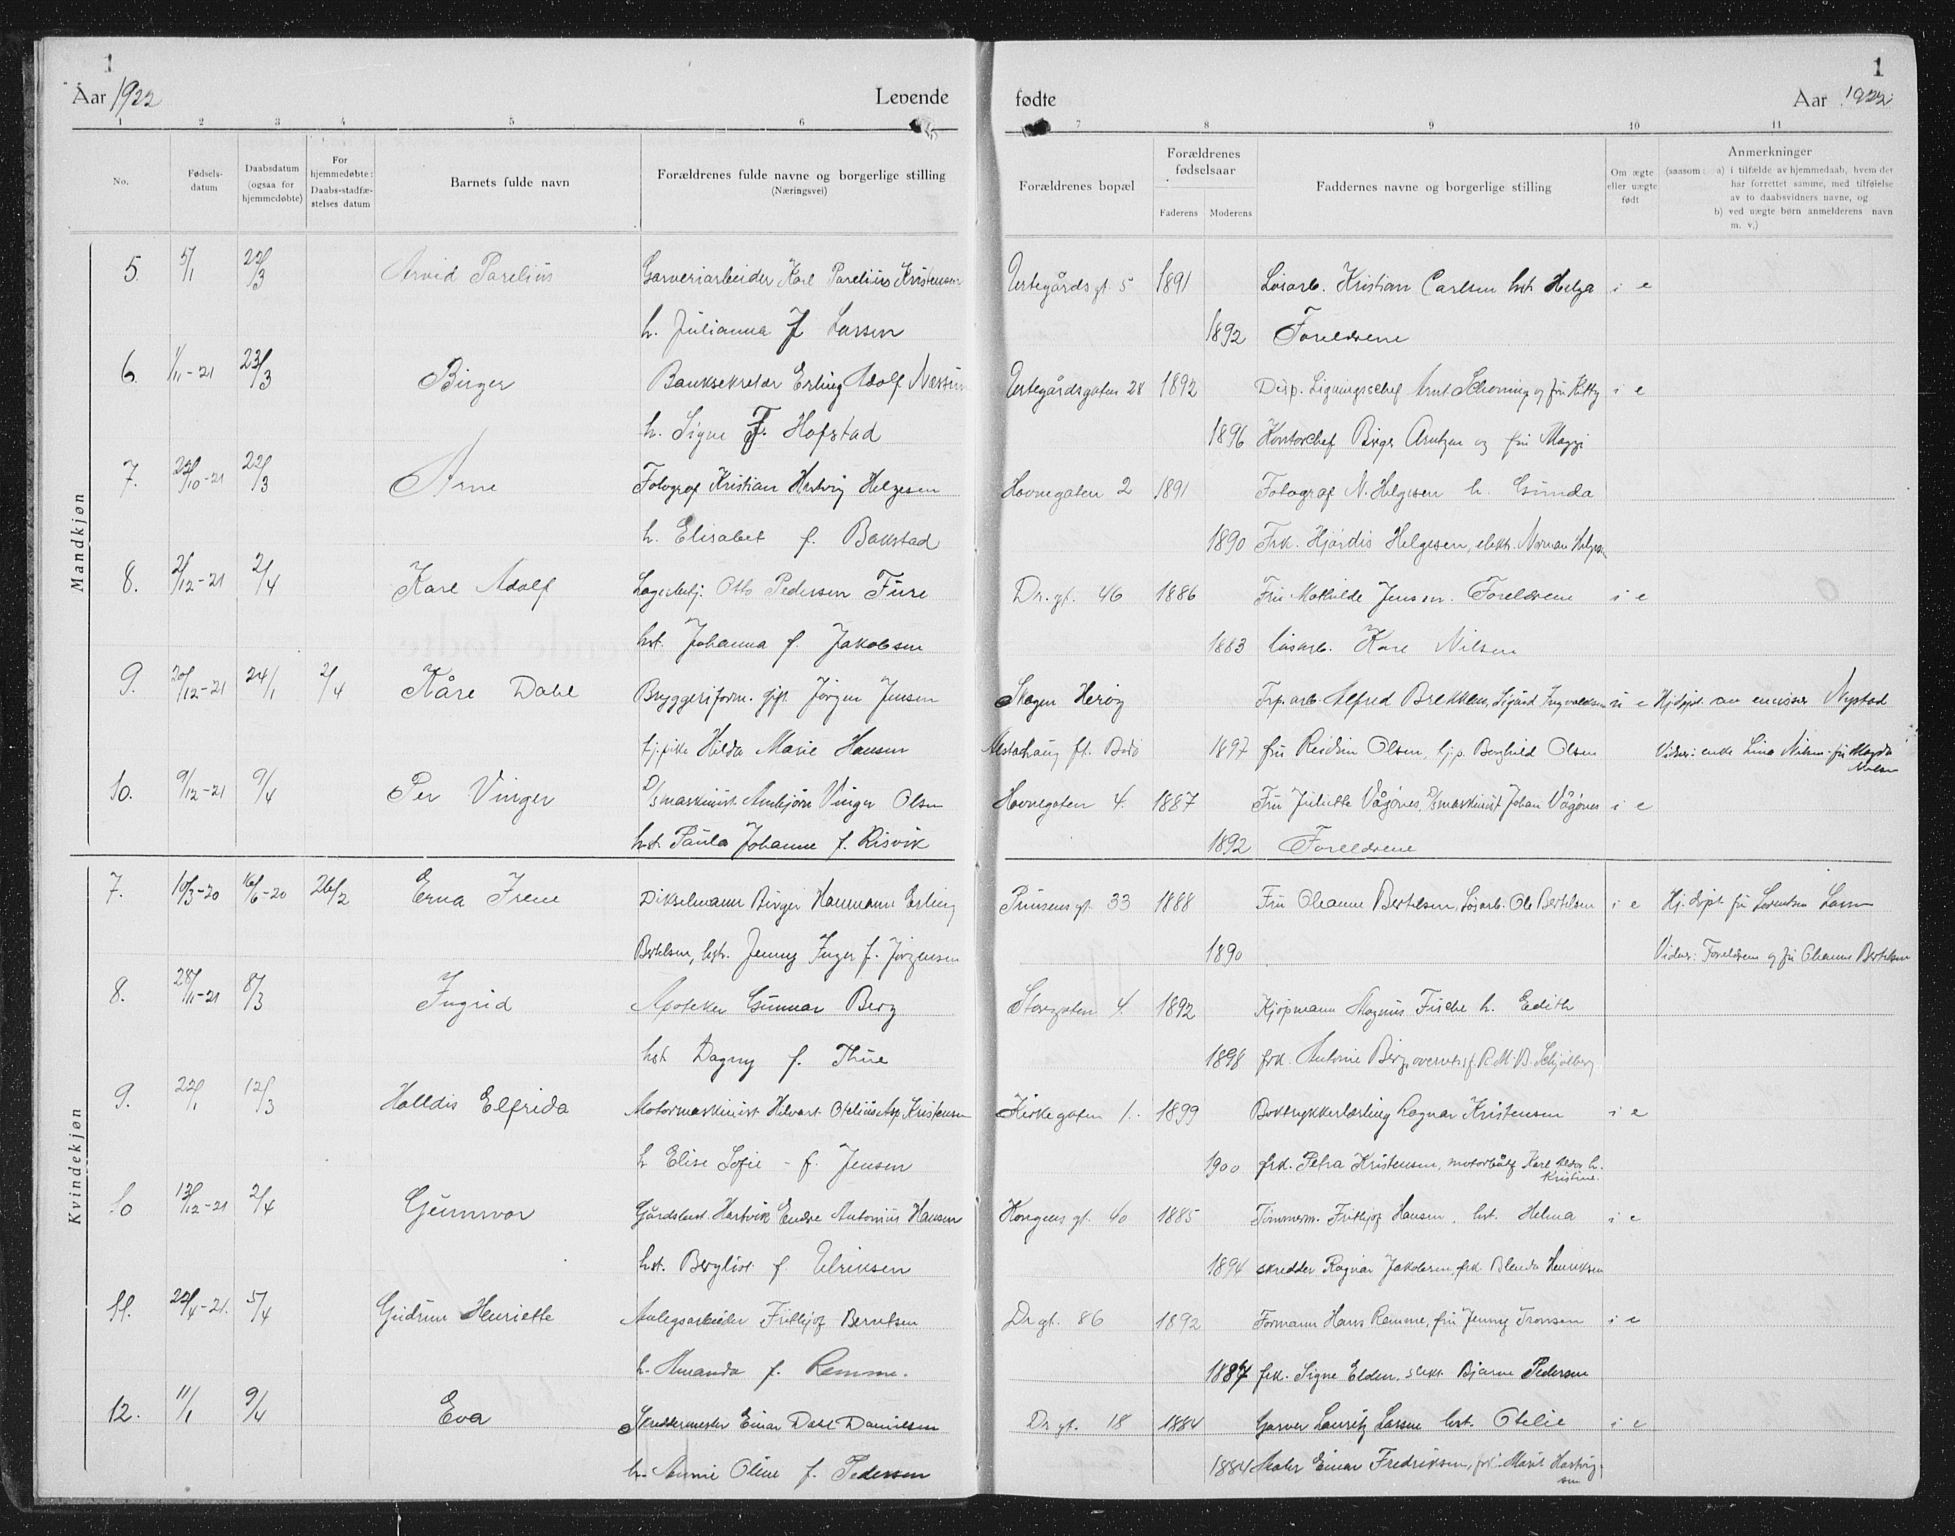 1
Aar 1922
Levende
1 2 3 4 5 6
No.
Fødsels-
datum
Daabsdatum
(ogsaa for
hjemmedøbte)
For
hjemmedøbte:
Daabs-stadfæ-
stelses datum
Barnets fulde navn
Forældrenes fulde navne og borgerlige stilling
(Næringsvei)
Mandkjøn
5. 5/1 22/3 Arvid Parelius Garveriarbeider Karl Parelius Kristensen
h. Julianna f Larsen
6. 1/11-21 23/3 Birger Banksekretær Erling Adolf
h. Signe F. Hofstad
7. 22/10-21 22/3 Arne Fotograf Kristian Hartvig Helgesen
h. Elisabet f. Bakstad
8. 2/12-21 2/4 Kare Adolf Otto Pedersen Fure
hst. Johanna f. Jakobsen
9. 20/12-21 24/1 2/4 Kåre Dahl Bryggeriform. gift Jörgen Jensen
tj. pike Hilda Marie Hansen
10. 9/12-21 9/4 Per Vinger D/smaskinist Arnbjörn Vinger Olsen
hst. Paula Johanne f. Risvik
Kvindekjøn
7. 10/3-20 16/6-20 26/2 Erna Irene Dikselmann Birger Haumann Erling
Bertelsen, hst. Jenny Inger f. Jörgensen
8. 28/11-21 8/3 Ingrid Apoteker Gunnar Berg
hst Dagny f. Thue
9. 22/1 12/3 Halldis Elfrida Motormaskinist Hilvart Kristensen
h Elise Sofie - f. Jensen
10 13/12-21 2/4 Gunnvor Gårdsbest. Hartvik Endre Antonius Hansen
hst. Bergliot f. Ulriksen
11. 22/4-21. 5/4 Gudrun Henriette Anlegsarbeider Fritkjof Berntsen
h. Amanda f. Remme.
12. 11/1 9/4 Eva Skreddermester Einar Dahl Danielsen
h. Annie Oline f. Pedersen
1
fødte
Aar 1922
7 8 9 10 11
Forældrenes bopæl
Forældrenes
fødselsaar
Faderens Moderens
Faddernes navne og borgerlige stilling
Om ægte
eller uægte
født
Anmerkninger
(saasom: a) i tilfælde av hjemmedaab, hvem der
har forrettet samme, med tilføielse
av to daabsvidners navne, og
b) ved uægte børn anmelderens navn
m. v.)
Urtegårdsgt. 5 1891 Lösarb. Kristian Carlsen hst Helga i e
1892 Foreldrene
Urtegårdsgaten 28 1892 Disp. Ligningschef Arnt Schöning og fru Kitty i e
1896 Kontorchef Birger Arntzen og fru Maggi
Havnegaten 2 1891 Fotograf N. Helgesen h. Gunda
1890 Frk. Hjördis Helgesen, elektr. Norman Helgesen
Dr.gt. 46 1886 Fru Mathilde Jensen. Foreldrene i e
1883 lösarb. Kare Nilsen
Skogen Heröy Alfred Brekken, Sigurd Ingvaldsen u e Hj.döpt av emissær Nystad
Alstahaug ft. Bodö 1897 fru Reidun Olsen, tj.p. Borghild Olsen Vidner: enke Lina Nilsen - fru Magda
Nilsen
Havnegaten 4. 1887 Fru Juliette Vågönes, D/smaskinist Johan Vågönes i e
1892 Foreldrene
Prinsensgt. 33 1888 Fru Oleanne Bertelsen, Lösarb. Ole Bertelsen i e Hj. döpt fru Lorentse Lam
1890 Vidner: Foreldrene og fru Oleanne Bertelsen
Storgaten 4. 1892 Kjöpmann Magnus Fische h. Edith
1898 frk. Antonie Berg, overrets.sf. R.M.B. Schjölberg
Kirkegaten 1. 1899 Boktrykkerlærling Ragnar Kristensen i e
1900 frk. Petra Kristensen, Karl h.
Kristine.
Kongensgt. 40 1885 Tömmerm. Fritkjof Hansen. hst. Helma i e
1894 skredder Ragnar Jakobsen, frk. Blenda Henriksen
Dr.gt. 86 1892 Formann Hans Remme, fru Jenny Tronsen i e
1887 frk. Signe Elden, slakt. Bjarne Pedersen
Dr.gt. 18 1884 Garver Lauritz Larsen hst. Otelie i e
1884 Maler Einar Fredriksen, frk. Marit Hartvig-
sen